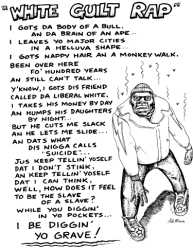 "WHITE GUILT RAP"
I GOTS DA BODY OF A BULL.
AN DA BRAIN OF AN APE...
I LEAVES YO MAJOR CITIES
IN A HELLUVA SHAPE.
I GOTS NAPPY HAIR AN A MONKEY WALK.
BEEN OVER HERE
FO' HUNDRED YEARS
AN STILL CAN'T TALK...
Y'KNOW, I GOTS DIS FRIEND
CALLED DA LIBERAL WHITE.
I TAKES HIS MONEY BY DAY
AN HUMPS HIS DAUGHTERS
BY NIGHT...
BUT HE CUTS ME SLACK
AN HE LETS ME SLIDE...
AN DATS WHAT
DIS NIGGA CALLS
'SUICIDE'...
JUS KEEP TELLIN' YOSELF
DAT I DON'T STINK.
AN KEEP TELLIN' YOSELF
DAT I CAN THINK.
WELL, HOW DOES IT FEEL
TO BE THE SLAVE
OF A SLAVE?
WHILE YOU DIGGIN'
IN YO POCKETS...
I BE DIGGIN'
YO GRAVE!